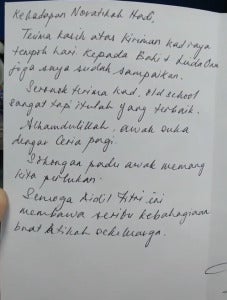 Kehadapan Noratikah Hadi,
Terima kasih atas kiriman kad raya
tempoh hari. Kepada Baki &
juga saya sudah sampaikan.
Seronok terima kad. Old school
sangat tapi itulah yang terbaik.
Alhamdulillah, awak suka
dengar Ceria pagi.
Sokongan padu awak memang
kita perlukan.
Semoga Aidil Fitri ini
membawa seribu kebahagiaan
buat Atikah sekeluarga.